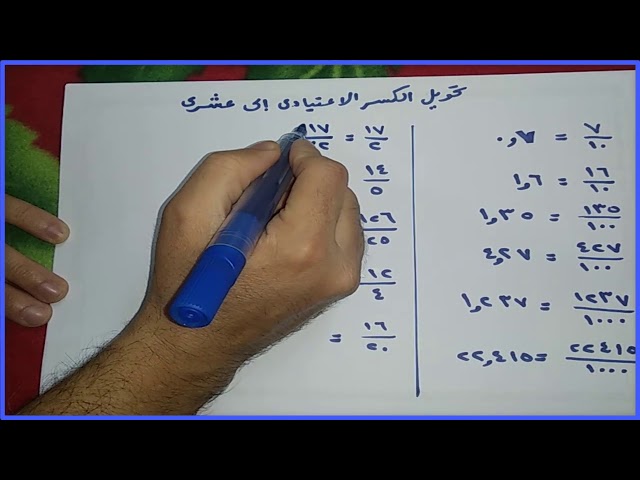 تحويل الكسر الاعتيادى إلى عشرى
٧/١٠ = ٠,٧
١٦/١٠ = ١,٦
١٣٥/١٠٠ = ١,٣٥
٤٢٧/١٠٠ = ٤,٢٧
١٢٣٧/١٠٠٠ = ١,٢٣٧
٢٢٤١٥/١٠٠٠ = ٢٢,٤١٥
١٧/٢ = ١٧
١٤/٥
١٢٦/٢٥
١٢/٤
١٦/٢٠ =